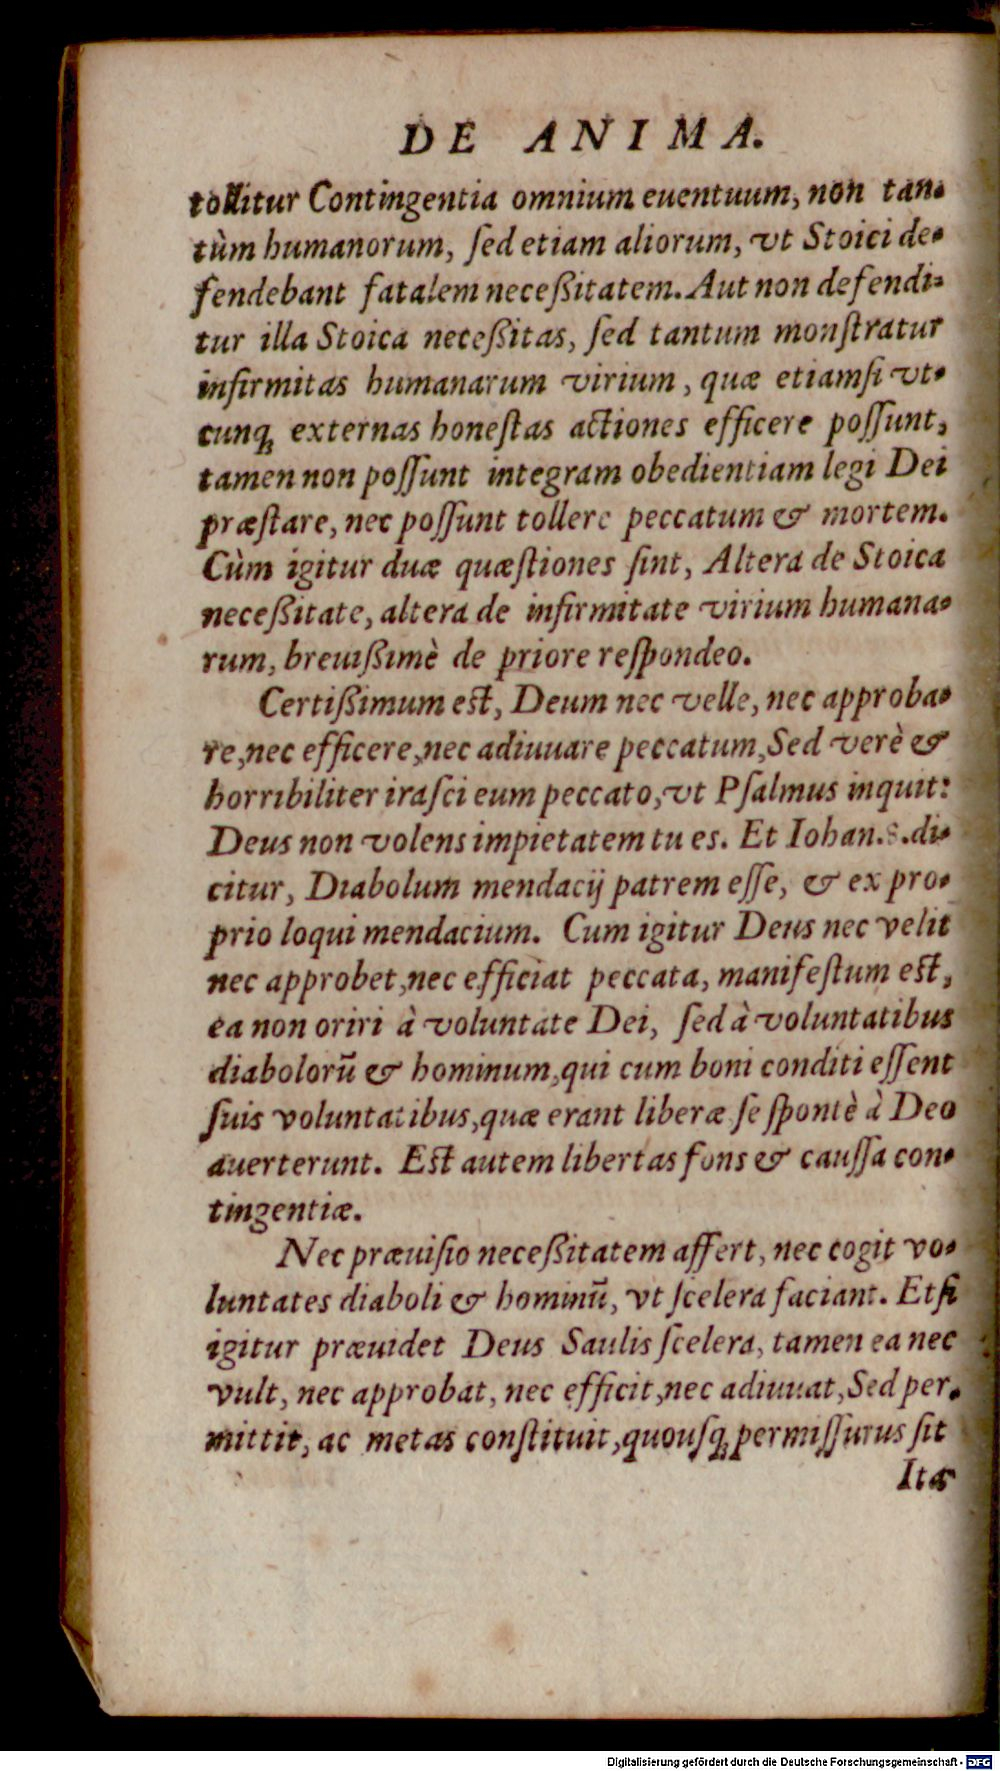 DE ANIMA.
tollitur Contingentia omnium euentuum, non tan-
tùm humanorum, ſed etiam aliorum, vt Stoici de-
fendebant fatalem neceßitatem. Aut non defendi-
tur illa Stoica neceßitas, ſed tantum monſtratur
infirmitas humanarum virium, quæ etiamſi vt-
cunq; externas honeſtas actiones efficere poſſunt,
tamen non poſſunt integram obedientiam legi Dei
præſtare, nec poſſunt tollere peccatum & mortem.
Cùm igitur duæ quæſtiones ſint, Altera de Stoica
neceßitate, altera de infirmitate virium humana-
rum, breuißimè de priore reſpondeo.
Certißimum eſt, Deum nec velle, nec approba-
re, nec efficere, nec adiuuare peccatum, Sed verè &
horribiliter iraſci eum peccato, vt Pſalmus inquit:
Deus non volens impietatem tu es. Et Iohan. 8. di-
citur, Diabolum mendacij patrem eſſe, & ex pro-
prio loqui mendacium. Cum igitur Deus nec velit
nec approbet, nec efficiat peccata, manifeſtum eſt,
ea non oriri à voluntate Dei, ſed à voluntatibus
diabolorū & hominum, qui cum boni conditi eſſent
ſuis voluntatibus, quæ erant liberæ ſe ſpontè à Deo
auerterunt. Eſt autem libertas fons & cauſſa con-
tingentiæ.
Nec præuiſio neceßitatem affert, nec cogit vo-
luntates diaboli & hominū, vt ſcelera faciant. Etſi
igitur præuidet Deus Saulis ſcelera, tamen ea nec
vult, nec approbat, nec efficit, nec adiuuat, Sed per-
mittit, ac metas conſtituit, quouſq; permiſſurus ſit
Ita
Digitalisierung gefördert durch die Deutsche Forschungsgemeinschaft - DFG